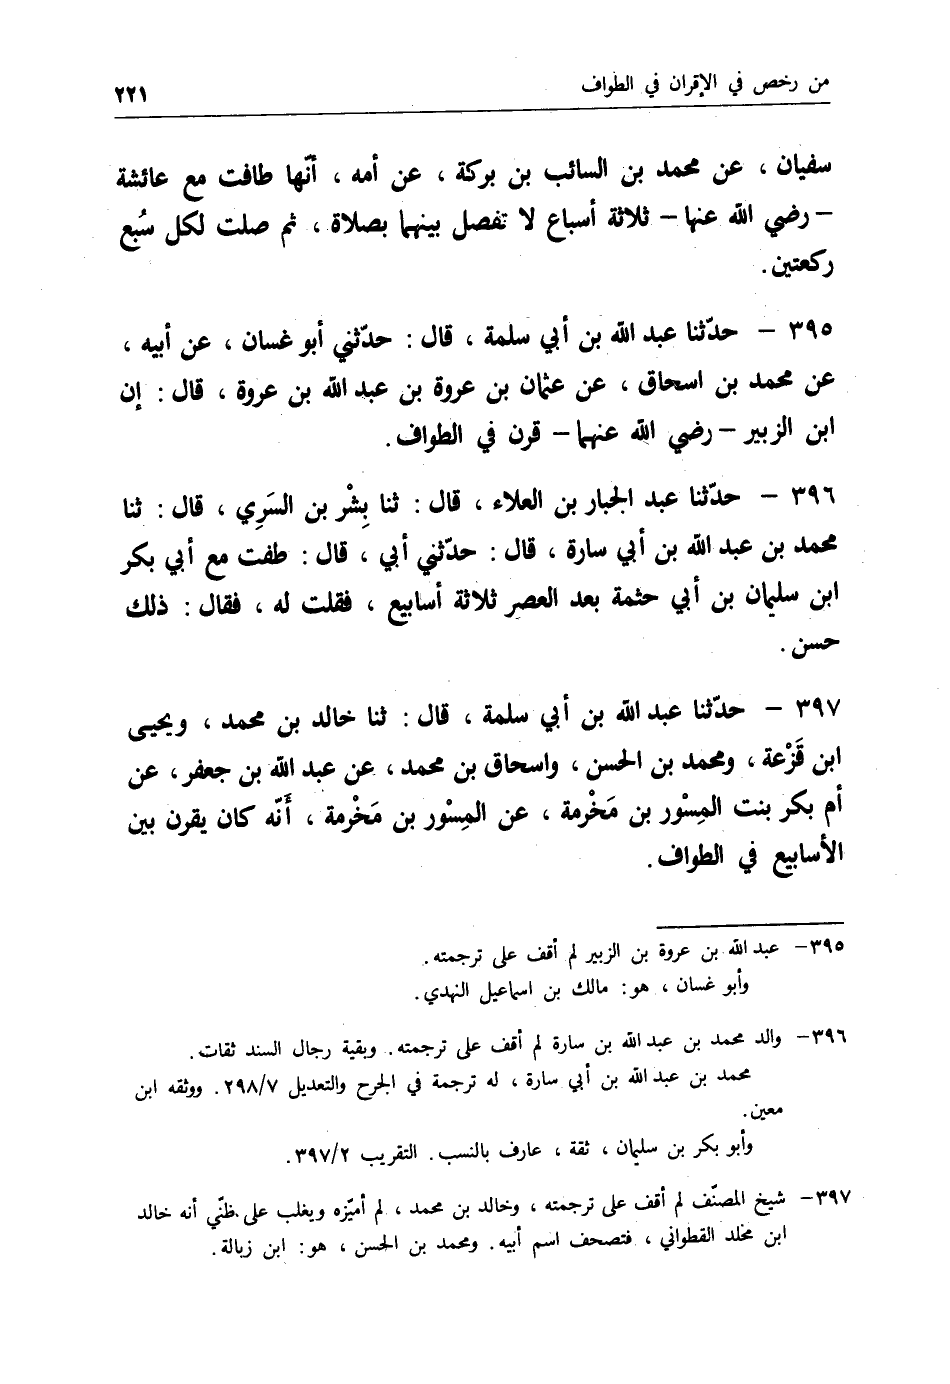 من رخص في الإقران في الطواف
٢٢١
سفيان ، عن محمد بن السائب بن بركة ، عن أمه ، أنّها طافت مع عائشة
– رضي الله عنها – ثلاثة أسباع لا تفصل بينهما بصلاة ، ثم صلت لكل سُبع
ركعتين.
٣٩٥ – حدّثنا عبد الله بن أبي سلمة ، قال : حدّثني أبو غسان ، عن أبيه ،
عن محمد بن اسحاق ، عن عثمان بن عروة بن عبد الله بن عروة ، قال : إن
ابن الزبير – رضي الله عنهما – قرن في الطواف.
٣٩٦ – حدّثنا عبد الجبار بن العلاء ، قال : ثنا بِشْر بن السَرِي ، قال : ثنا
محمد بن عبد الله بن أبي سارة ، قال : حدّثني أبي ، قال : طفت مع أبي بكر
ابن سليمان بن أبي حثمة بعد العصر ثلاثة أسابيع ، فقلت له ، فقال : ذلك
حسن.
٣٩٧ – حدّثنا عبد الله بن أبي سلمة ، قال : ثنا خالد بن محمد ، ويحيى
ابن قَزْعة ، ومحمد بن الحسن ، واسحاق بن محمد ، عن عبد الله بن جعفر ، عن
أم بكر بنت المِسْور بن مَخْرمة ، عن المِسْور بن مَخْرمة ، أَنّه كان يقرن بين
الأسابيع في الطواف.
٣٩٥– عبد الله بن عروة بن الزبير لم أقف على ترجمته.
وأبو غسان ، هو : مالك بن اسماعيل النهدي.
٣٩٦– والد محمد بن عبد الله بن سارة لم أقف على ترجمته. وبقية رجال السند ثقات.
محمد بن عبد الله بن أبي سارة ، له ترجمة في الجرح والتعديل ٢٩٨/٧. ووثقه ابن
معين.
وأبو بكر بن سليمان ، ثقة ، عارف بالنسب. التقريب ٣٩٧/٢.
٣٩٧– شيخ المصنّف لم أقف على ترجمته ، وخالد بن محمد ، لم أميّزه ويغلب على ظنّي أنه خالد
ابن مخلد القطواني ، فتصحف اسم أبيه. ومحمد بن الحسن ، هو : ابن زبالة.